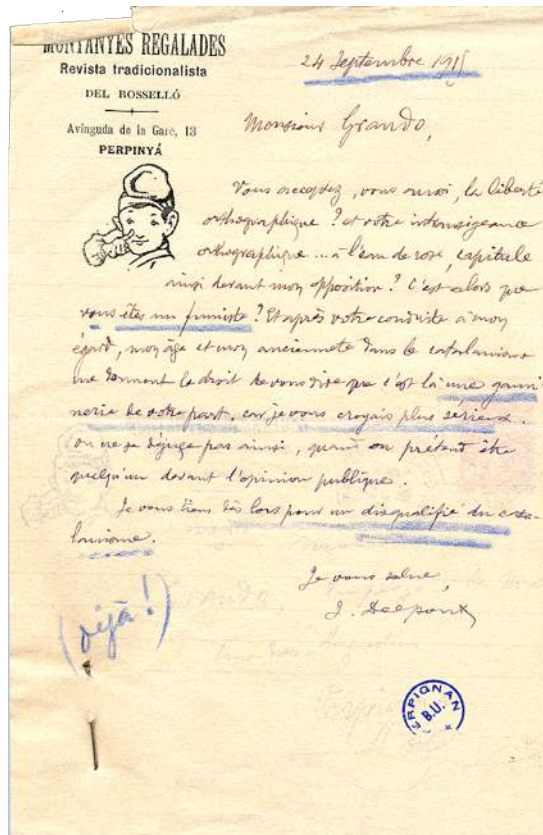 MUNTANYES REGALADES
Revista tradicionalista
DEL ROSSELLÓ
Avinguda de la Gare, 13
PERPINYÁ
24 Septembre 191
Monsieur Grando,
Vous acceptez, vous aussi, la liberté
orthographique ? et votre intransigeance
orthographique ... à l'eau de rose, capitule
ainsi devant mon opposition ? C'est alors que
vous êtes un fumiste ? Et après votre conduite à mon
égard, mon âge et mon ancienneté dans le catalanisme
me donnent le droit de vous dire que c'est là une gami
nerie de votre part, car je vous croyais plus sérieux.
on ne se déjuge pas ainsi, quand on prétend être
quelqu'un devant l'opinion publique.
Je vous tiens dès lors pour un disqualifié du cata-
lanisme.
Je vous salue,
J. Delpont
(déjà !)
PERPIGNAN
B.U.